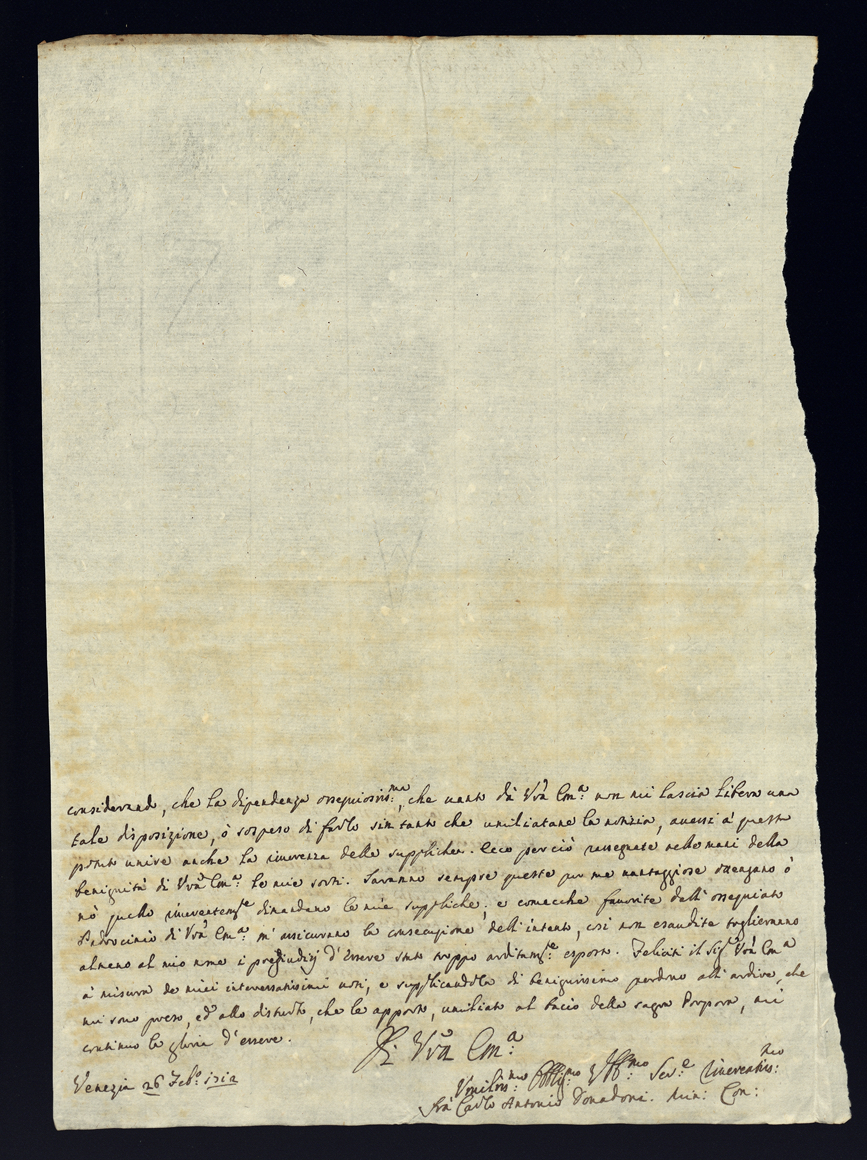 considerando, che la dipendenza ossequiosis:ma, che vanto dà Vra Em:a non mi lascia libera una
tale disposizione, ò sospeso di farlo sin tanto che umiliatane la notizia, avessi à questa
potuto unire anche la riverenza delle suppliche. Ecco perciò rassegnate nelle mani della
benignità di Vra Em:a le mie sorti. Saranno sempre queste per me vantaggiose ottengano ò
nò quello riverentem:te dimandano le mie suppliche; e comecche favorite dall' ossequiato
Padrocinio di Vra Em:a m' assicurano la consecuzione dell' intento, così non esaudite toglieranno
almeno al mio nome i pregiudizj d' essere stato troppo arditam:te esposto. Feliciti il Sig:r Vra Em:a
à misura de miei interessatissimi voti, e supplicandola di benignissimo perdono all' ardire, che
mi sono preso, ed' allo disturbo, che le apporto, umiliato al bacio della sagra Porpora, mi
continuo la gloria d' essere.
Di Vra Em:a
Venezia 26 Feb:o 1712
Umilis:mo Obblig:mo Ser:e Riverentis:mo
Frà Carlo Antonio Donadoni. Min: Con: